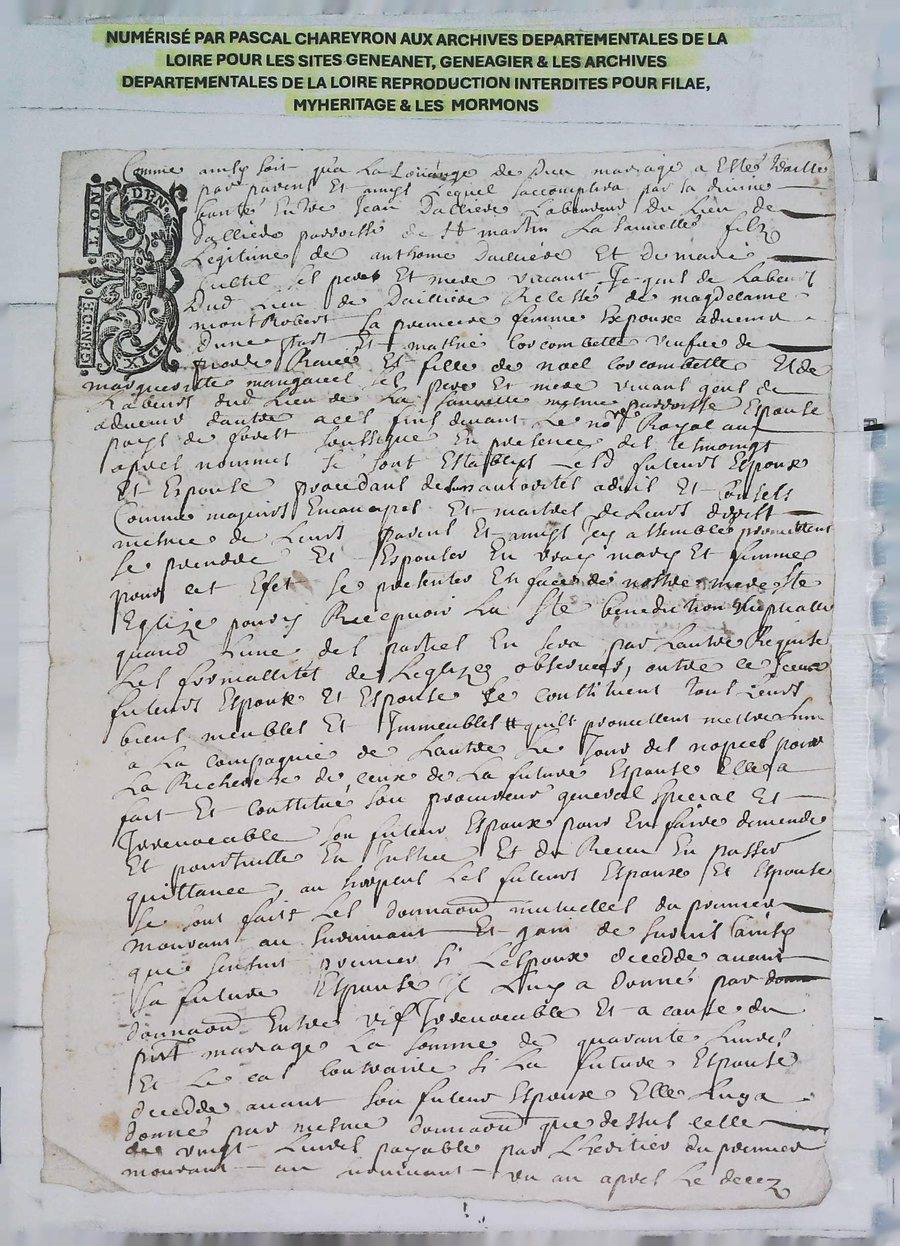 NUMÉRISÉ PAR PASCAL CHAREYRON AUX ARCHIVES DEPARTEMENTALES DE LA
LOIRE POUR LES SITES GENEANET, GENEAGIER & LES ARCHIVES
DEPARTEMENTALES DE LA LOIRE REPRODUCTION INTERDITES POUR FILAE,
MYHERITAGE & LES MORMONS
GEN·DE· LION
Comme ainsy soit qua La Louange de Dieu mariage a Esté traitté
par parens Et amys Lequel saccomplira par sa divine
bonté Entre Jean Dalliere Laboureur du Lieu de
Dalliere parroisse de St martin La Sauveté filz
Legitime de anthoine Dalliere Et de marie
ses pere Et mere vivant Je gens de Labeurs
dud Lieu de Dalliere Relesse de magdelaine
montRobert sa premiere femme Espoux advenir
dune part Et mathie Corcombette veufve de
Et fille de noel Corcombette Et de
marguerite ses pere Et mere vivant gens de
Labeurs dud Lieu de La Sauvetté mesme parroisse Espouse
advenir dautre a ces fins devant Le nore Royal au
pays de forest soussigné En presence des tesmoings
apres nommes se sont Establys Lesd futeurs Espoux
Et Espouse procedant de Leurs autorités advis Et Conseils
Comme majeurs Emancipes Et maitres de Leurs droits
mesme de Leurs parens Et amys Icy assemblés promettent
se prendre Et Espouser En vrays marys Et femme
pour cet Efet se presenter En face de nostre mere Ste
Eglize pour y Recepvoir La Ste benediction Nuptialle
quand Lune des parties En sera par Lautre Requise
Les formallites de Leglize observees, outre ce Iceux
futeurs Espoux Et Espouse Se constituent tous Leurs
biens meubles Et Immeubles # quils promettent mettre Lun
a La compagnie de Lautre Le Jour des nopces pour
La Recherche de ceux de La future Espouse Elle a
fait Et constitué son procureur general special Et
Irrevocable son futeur Espoux pour En faire demande
Et poursuitte En Justice Et du Receu En passer
quittance, au surplus Les futeurs Espoux Et Espouse
se sont faits Les donnaons mutuelles du premier
mourant au survivant Et gain de survis ainsy
que sensuit premier si Lespoux decedde avant
sa future Espouse Il Luy a donnés par
donnaon Entre vif Irrevocable Et a cause du
pnt mariage La somme de quarante Livres
Et Le cas contraire si La future Espouse
decedde avant son futeur Espoux Elle Luy a
donné par mesme donnaon que dessus celle
de vingt Livres payable par Lheritier du premier
mourant au un an apres Le decez